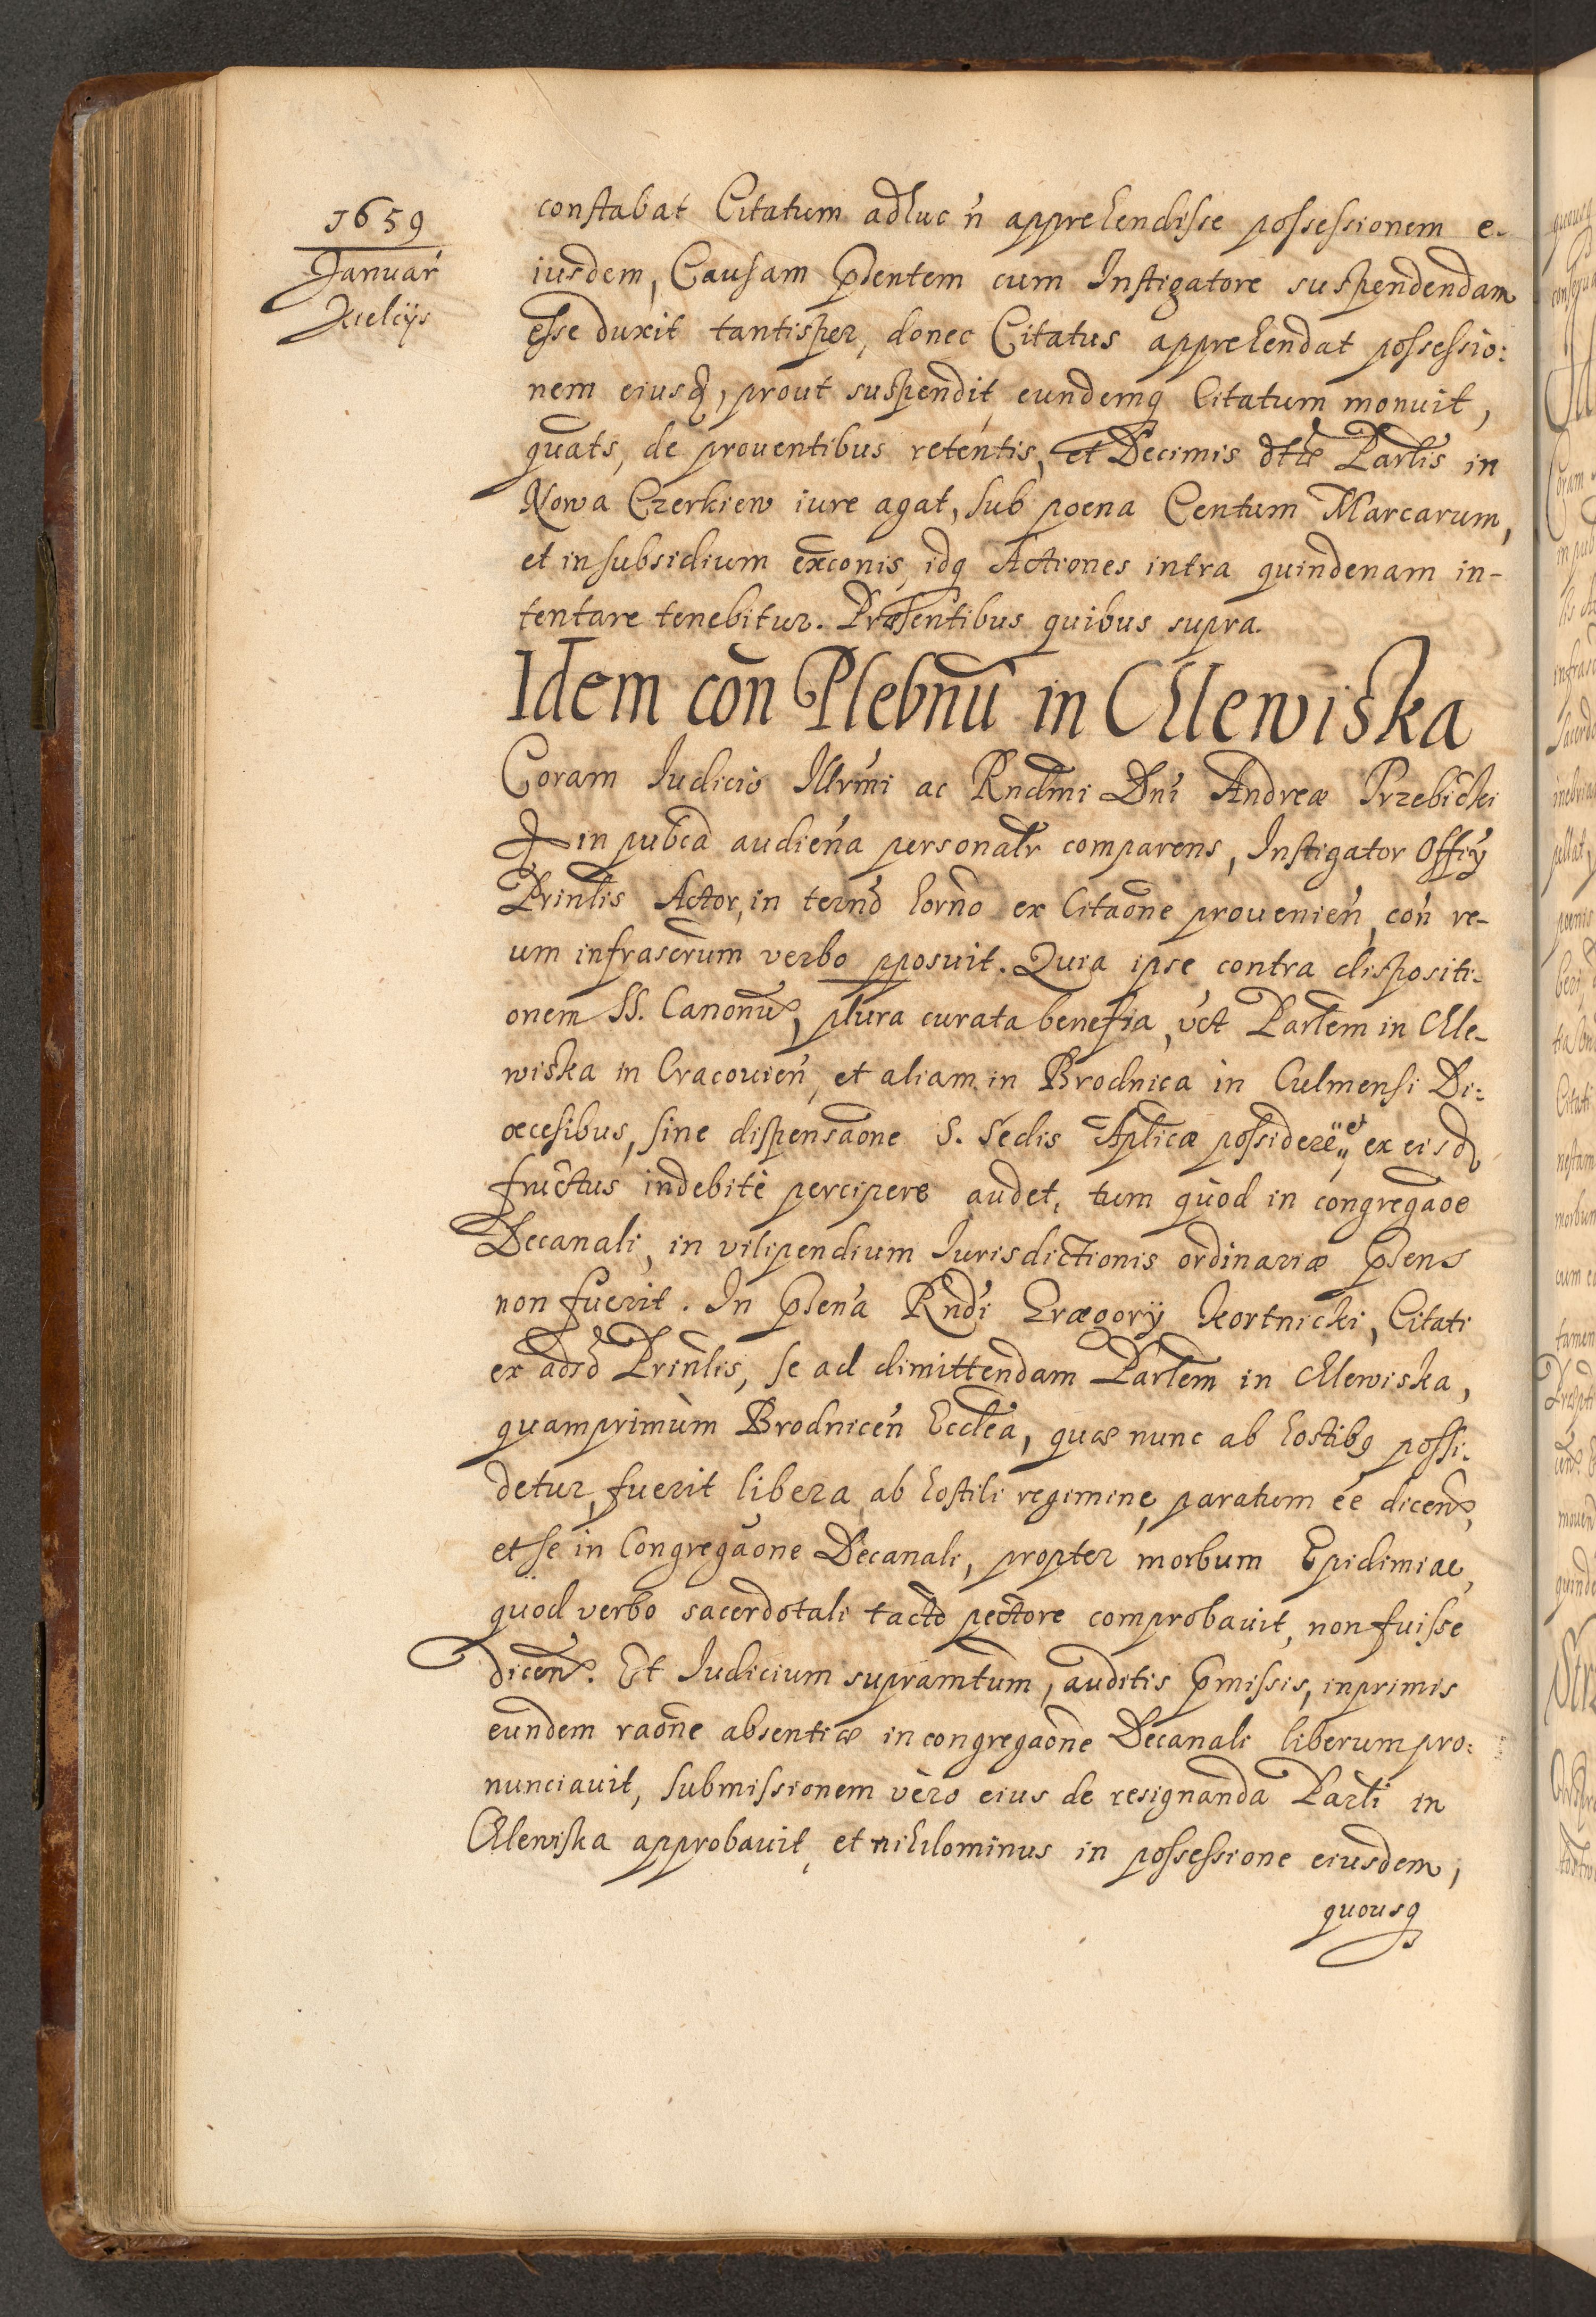 1659
Januar̃
Kielcijs
constabat Citatum adhuc ñ apprehendisse possessionem e-
iusdem, Causam p̃sentem cum Instigatore suspendendam
esse duxit tantisper, donec Citatus apprehendat possessio:
nem eiusd, prout suspendit, eundemq Citatum monuit,
quat̃s, de prouentibus retentis, et Decimis dt̃æ Par̃lis in
Nowa Czerkiew iure agat, sub poena Centum Marcarum,
et in subsidium ex̃conis, idq Actiones intra quindenam in-
tentare tenebitur. Præsentibus quibus supra.
Idem con̄ Plebnū in Chlewiska
Coram Iudicio Illr̃mi ac Rnd̃mi Dñi Andreæ Przebicki
in pub̃ca audieña personal̃r comparens, Instigator Offij
Prinl̃is Actor, in terñō horño ex Citãone prouenieñ, coñ re-
um infrascr̃um verbo pposuit. Quia ipse contra dispositi-
onem SS. Canonũ, plura curata benefia, vct Parl̃em in Chle-
wiska in Cracouieñ, et aliam in Brodnica in Culmensi Di:
œcesibus, sine dispensãone S. Sedis Apl̃icæ possidere et ex eisd
fructus indebitè percipere audet, tum quòd in congregãoe
Decanali, in vilipendium Iurisdictionis ordinariæ p̃sens
non fuerit. In p̃sen̄a Rndi Grægorij Kortnicki, Citati
ex adsō Prinl̃is, se ad dimittendam Parl̃em in Chlewiska,
quamprimùm Brodniceñ Eccl̃ea, quæ nunc ab hostibq possi-
detur, fuerit libera ab hostili regimine, paratum ẽe dicen̄,
et se in Congregãone Decanali, propter morbum Epidimiae,
quod verbo sacerdotali tacto pectore comprobauit, non fuisse
dicen̄. Et Iudicium supramt̃um, auditis p̃missis, inprimis
eundem raõne absentiæ in congregãone Decanali liberum pro:
nunciauit, submissionem vèro eius de resignanda Parl̃i in
Chlewiska approbauit, et nihilominus in possessione eiusdem,
quousq